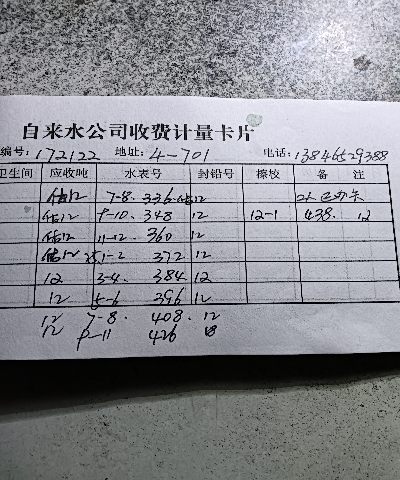 自来水公司收费计量卡片
编号: 172122 地址: 4-701 电话: 13846529388
卫生间 应收吨 水表号 封铅号 檫较 备 注
估12 7-8. 336 估12
估12 9-10. 348 12 12-1 438. 12
估12 11-12. 360 12
估12 1-2 372 12
12 3-4. 384 12
12 5-6 396 12
12 7-8. 408. 12
12 9-11 426